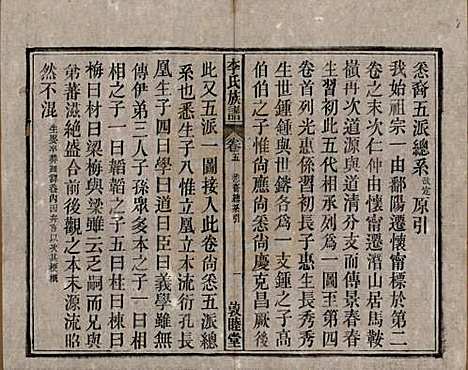 悉裔五派總系改定原引
我始祖宗一由鄱陽遷懷甯再標於第二
卷之末次仁仲由懷甯遷潛山居馬鞍
嶺再次道源與世清而傳景春春
生習初此五代相承列爲一圖王第四
卷首列光惠係習初長子惠生長秀秀
生世鍾者與世鎔各爲一支鍾之子高
伯伯之子尚悉尚慶克昌厥後
李氏族譜
卷五 悉裔總系引
一
敦睦堂
此又五派一圖接入此卷尚悉五派總
系也悉生子八惟立凰立本流衍孔長
凰生子四曰學曰道曰臣曰義學雖無
傳伊弟三人子孫眾多本之子一曰相
相之子一曰韜韜之子五曰柱曰棟曰
梅曰材曰梁梅與梁雖云無嗣而兄與
弟蕃滋絕盛合前後觀之本末源流昭
然不混